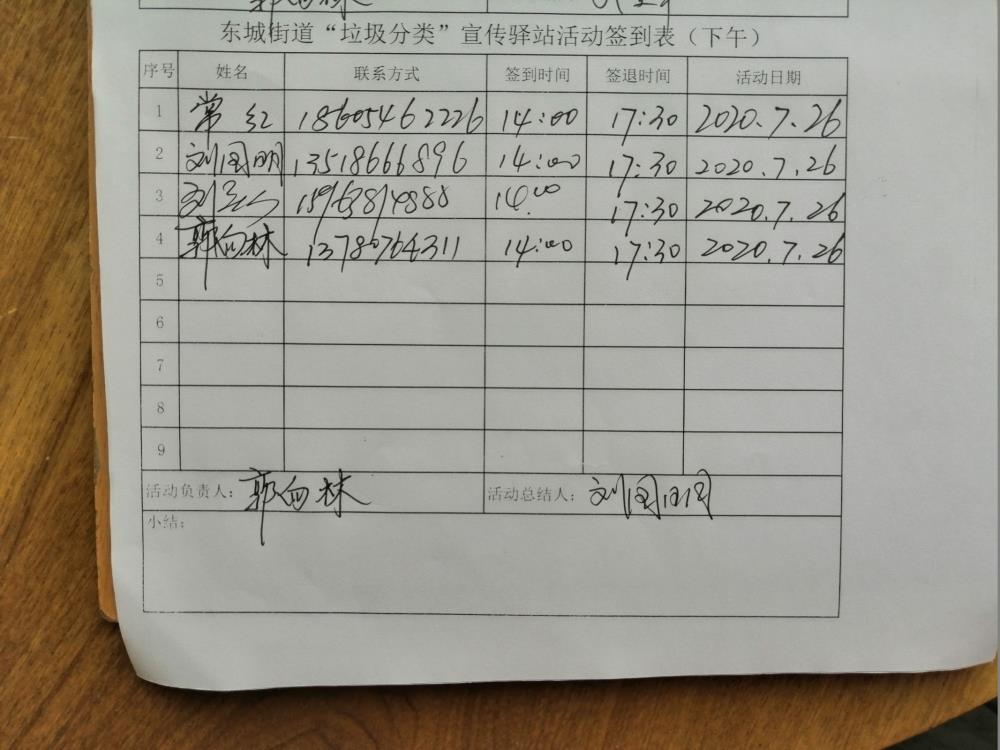 东城街道“垃圾分类”宣传驿站活动签到表（下午）
序号 姓名 联系方式 签到时间 签退时间 活动日期
1 常红 18605462226 14:00 17:30 2020.7.26
2 刘国明 13518666896 14:00 17:30 2020.7.26
3 刘 14:00 17:30 2020.7.26
4 郭向林 13780764311 14:00 17:30 2020.7.26
5
6
7
8
9
活动负责人：郭向林 活动总结人：刘国明
小结：